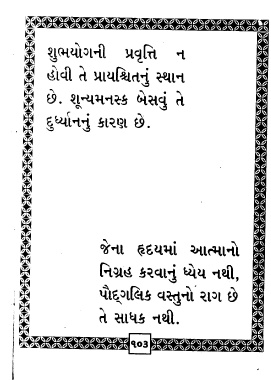 શુભયોગની પ્રવૃત્તિ ન
હોવી તે પ્રાયશ્ચિતનું સ્થાન
છે. શૂન્યમનસ્ક બેસવું તે
દુર્ધ્યાનનું કારણ છે.
જેના હૃદયમાં આત્માનો
નિગ્રહ કરવાનું ધ્યેય નથી,
પૌદ્‌ગલિક વસ્તુનો રાગ છે
તે સાધક નથી.
૧૦૩